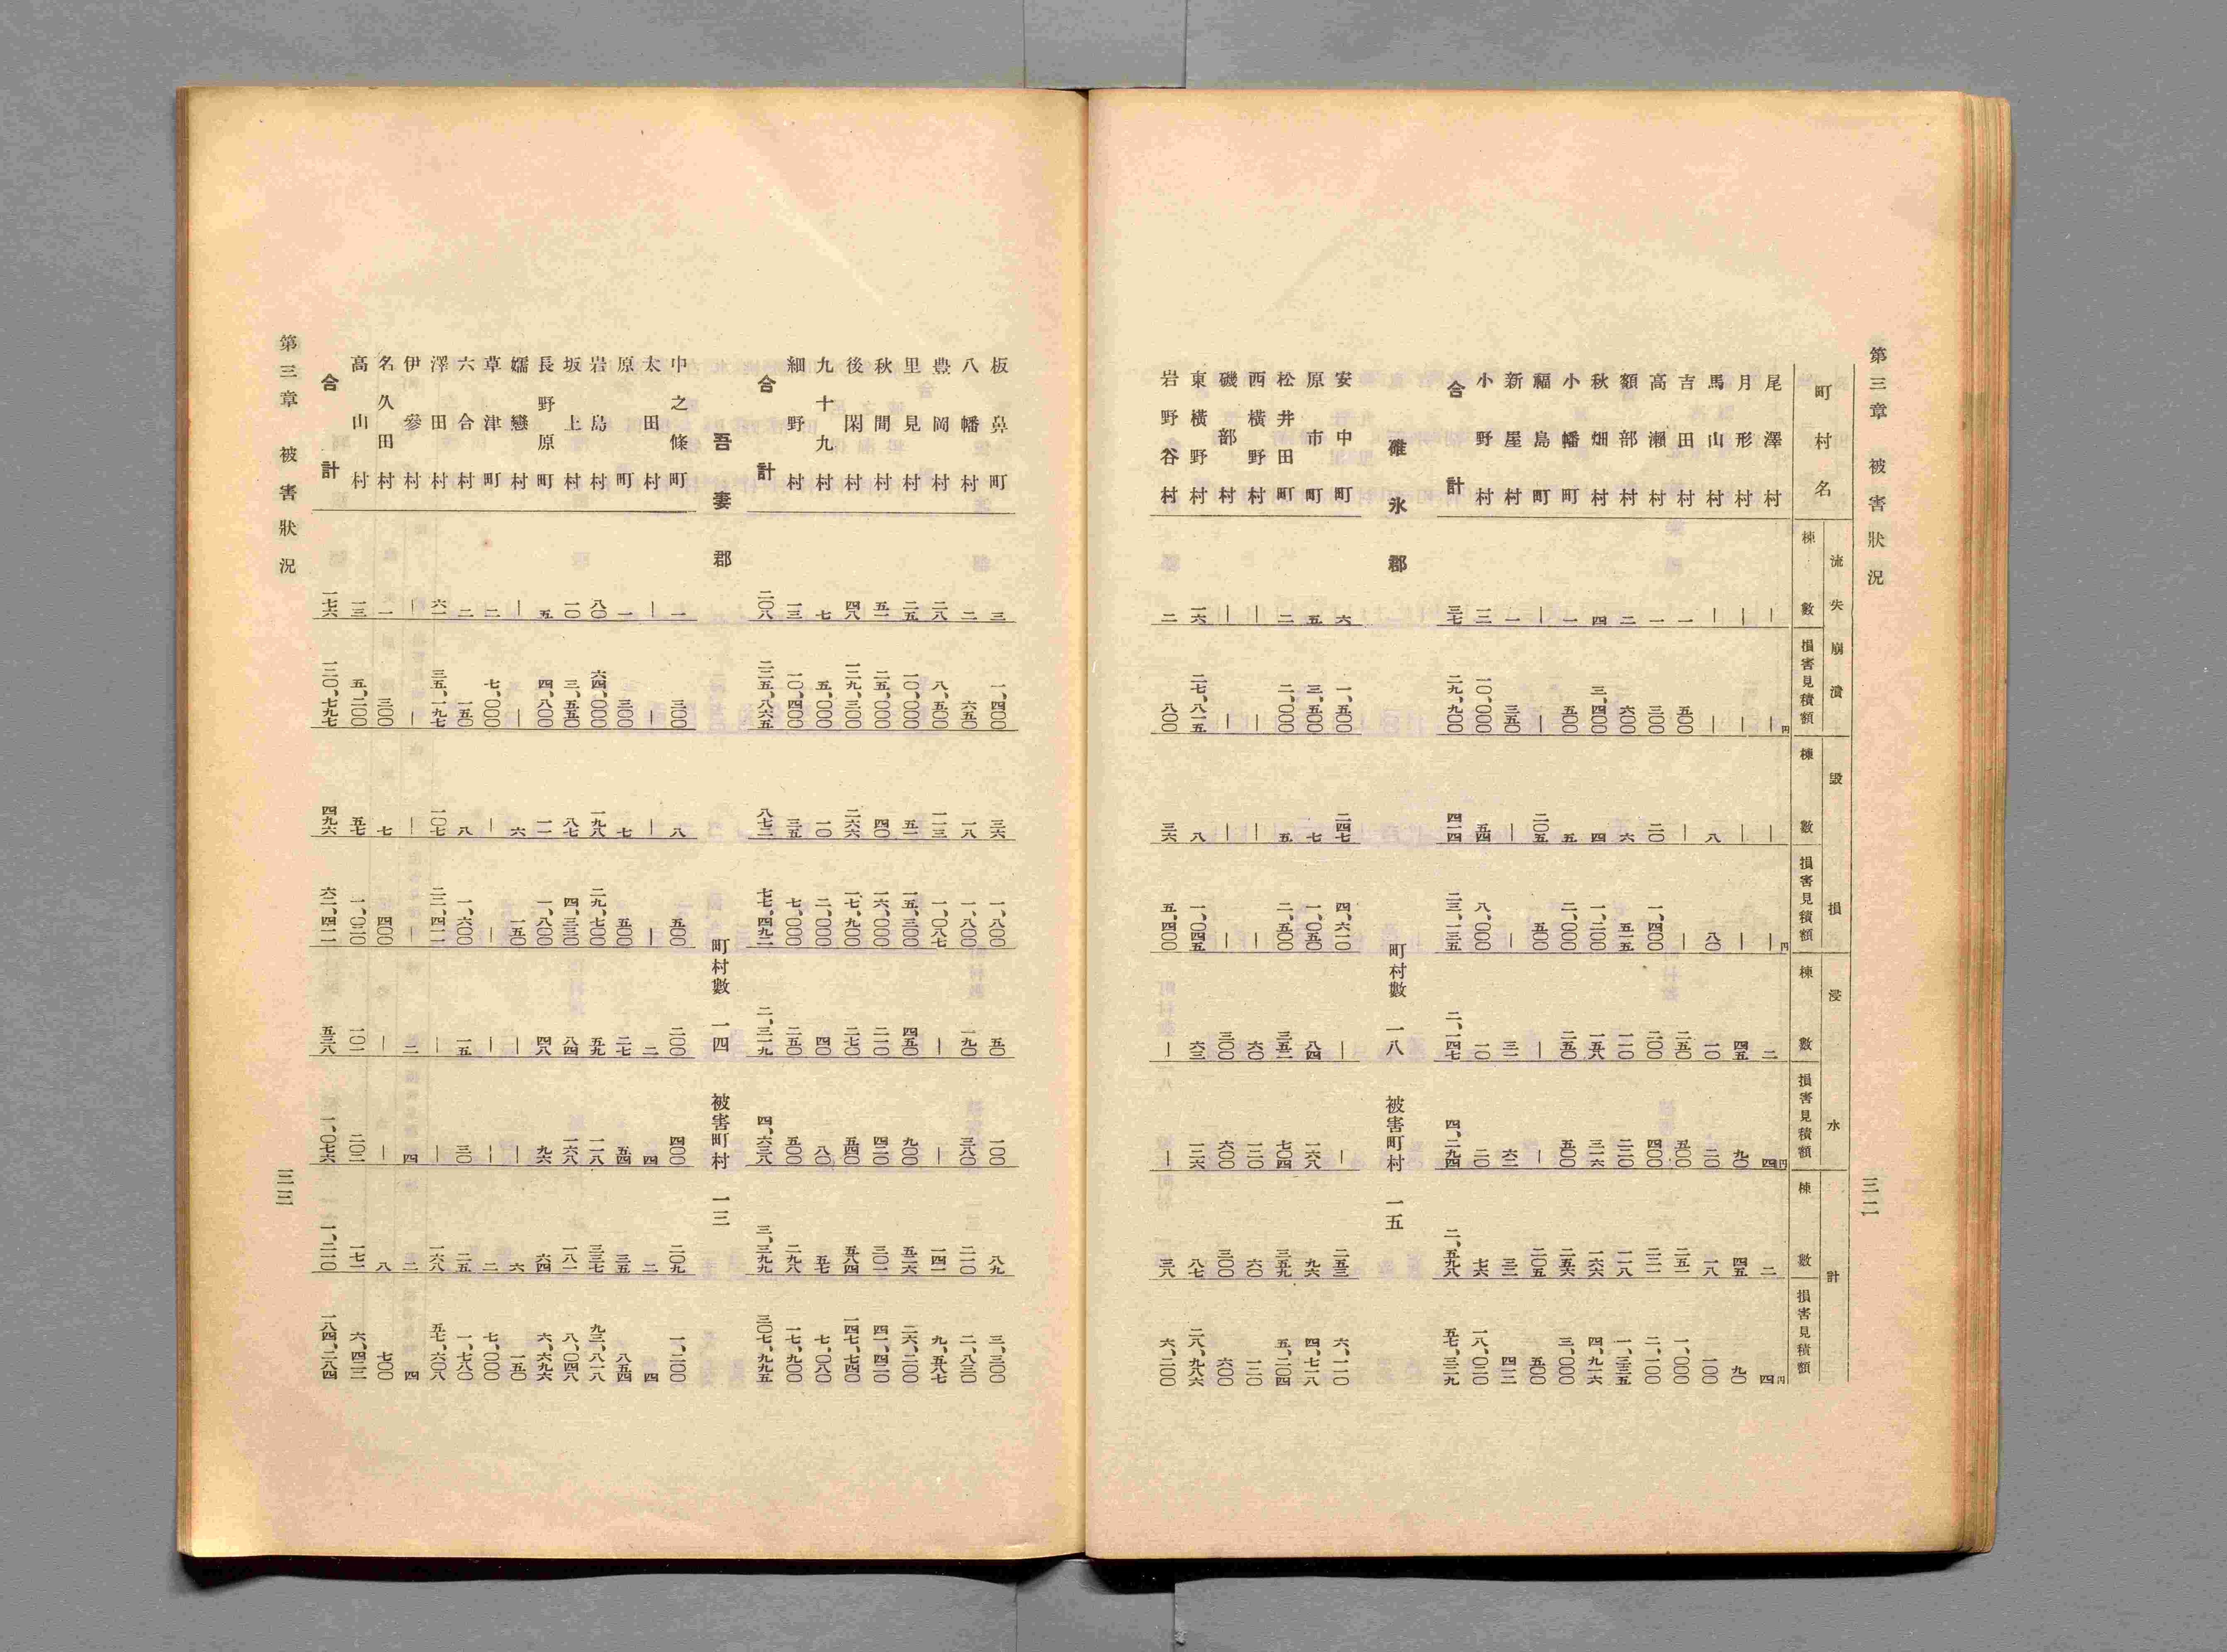 第三章 被害狀況 三二
町村名 流失崩潰 棟數 損害見積額 毀損 棟數 損害見積額 浸水 棟數 損害見積額 計 棟數 損害見積額
尾澤村 ― ―円 ― ―円 二 四円 二 四円
月形村 ― ― ― ― 四五 九〇 四五 九〇
馬山村 ― ― 八 八〇 一〇 二〇 一八 一〇〇
吉田村 一 五〇〇 ― ― 二五〇 五〇〇 二五一 一、〇〇〇
高瀬村 一 三〇〇 二〇 一、四〇〇 二〇〇 四〇〇 二二一 二、一〇〇
額部村 二 六〇〇 六 五一五 一一〇 二二〇 一一八 一、三三五
秋畑村 四 三、四〇〇 四 一、二〇〇 一五八 三一六 一六六 四、九一六
小幡町 一 五〇〇 五 二、〇〇〇 二五〇 五〇〇 二五六 三、〇〇〇
福島町 ― ― 二〇五 五〇〇 ― ― 二〇五 五〇〇
新屋村 一 三五〇 ― ― 三一 六二 三二 四一二
小野村 一二 一〇、〇〇〇 五四 八、〇〇〇 一〇 二〇 七六 一八、〇二〇
合計 三七 二九、九〇〇 四一四 二三、一三五 二、一四七 四、二九四 二、五九八 五七、三二九
碓氷郡 町村數 一八 被害町村 一五
安中町 六 一、五〇〇 二四七 四、六一〇 ― ― 二五三 六、一一〇
原市町 五 三、五〇〇 七 一、〇五〇 八四 一六八 九六 四、七一八
松井田町 二 二、〇〇〇 五 二、五〇〇 三五二 七〇四 三五九 五、二〇四
西横野村 ― ― ― ― 六〇 一二〇 六〇 一二〇
磯部村 ― ― ― ― 三〇〇 六〇〇 三〇〇 六〇〇
東横野村 一六 二七、八一五 八 一、〇四五 六三 一二六 八七 二八、九八六
岩野谷村 二 八〇〇 三六 五、四〇〇 ― ― 三八 六、二〇〇
板鼻町 三 一、四〇〇 三六 一、八〇〇 五〇 一〇〇 八九 三、三〇〇
八幡村 二 六五〇 一八 一、八〇〇 一九〇 三八〇 二一〇 二、八三〇
豊岡村 二八 八、五〇〇 一一三 一、〇八七 ― ― 一四一 九、五八七
里見村 二五 一〇、〇〇〇 五一 一五、三〇〇 四五〇 九〇〇 五二六 二六、二〇〇
秋間村 五一 二五、〇〇〇 四〇 一六、〇〇〇 二一〇 四二〇 三〇一 四一、四二〇
後閑村 四八 一二九、三〇〇 二六六 一七、九〇〇 二七〇 五四〇 五八四 一四七、七四〇
九十九村 七 五、〇〇〇 一〇 二、〇〇〇 四〇 八〇 五七 七、〇八〇
細野村 一三 一〇、四〇〇 三五 七、〇〇〇 二五〇 五〇〇 二九八 一七、九〇〇
合計 二〇八 二二五、八六五 八七二 七七、四九二 二、三一九 四、六三八 三、三九九 三〇七、九九五
吾妻郡 町村數 一四 被害町村 一三
中之條町 一 三〇〇 八 五〇〇 二〇〇 四〇〇 二〇九 一、二〇〇
太田村 ― ― ― ― 二 四 二 四
原町 一 三〇〇 七 五〇〇 二七 五四 三五 八五四
岩島村 八〇 六四、〇〇〇 一九八 二九、七〇〇 五九 一一八 三三七 九三、八一八
坂上村 一〇 三、五五〇 八七 四、三三〇 八四 一六八 一八一 八、〇四八
長野原町 五 四、八〇〇 一一 一、八〇〇 四八 九六 六四 六、六九六
嬬戀村 ― ― 六 一五〇 ― ― 六 一五〇
草津町 二 七、〇〇〇 ― ― ― ― 二 七、〇〇〇
六合村 二 一五〇 八 一、六〇〇 一五 三〇 二五 一、七八〇
澤田村 六一 三五、一九七 一〇七 二二、四一一 ― ― 一六八 五七、六〇八
伊參村 ― ― ― ― 二 四 二 四
名久田村 一 三〇〇 七 四〇〇 ― ― 八 七〇〇
高山村 一三 五、二〇〇 五七 一、〇二〇 一〇一 二〇二 一七一 六、四二二
合計 一七六 一二〇、七九七 四九六 六二、四一一 五三八 一、〇七六 一、二一〇 一八四、二八四
第三章 被害狀況 三三